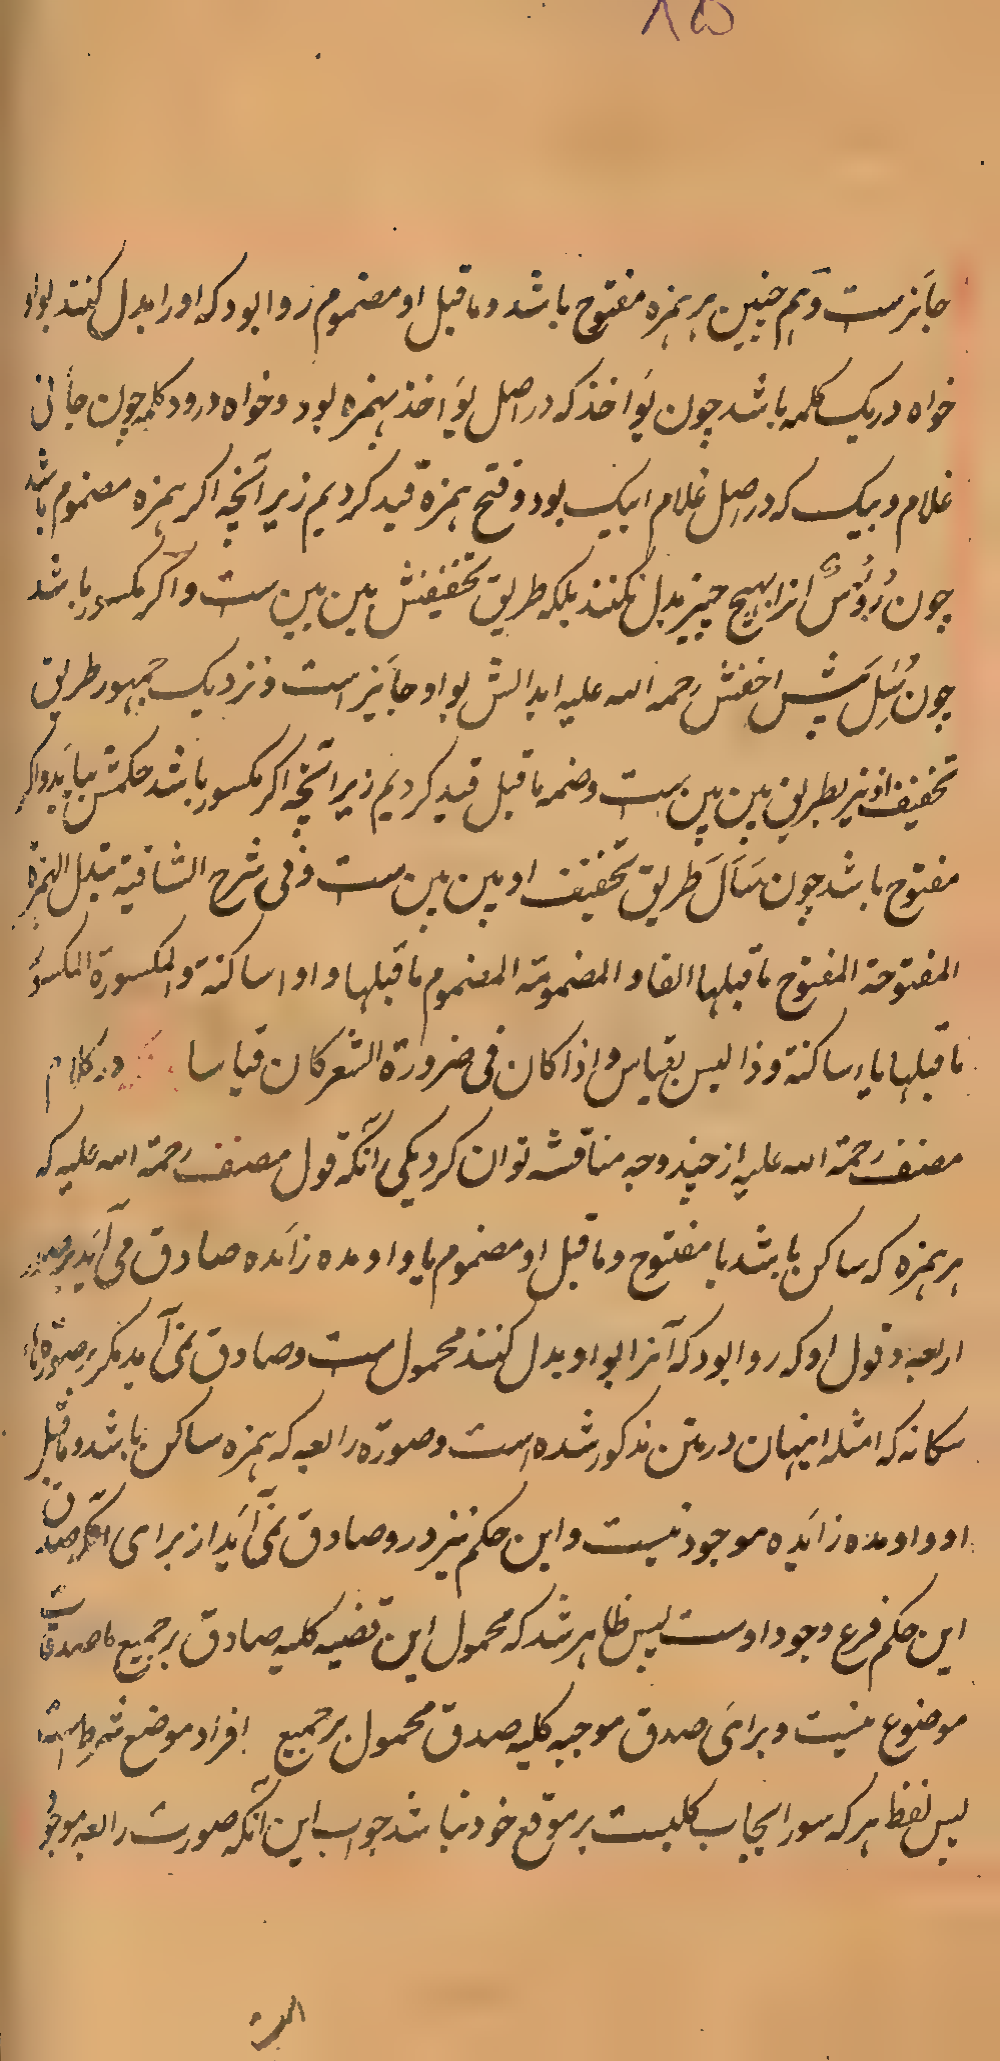 ۸۵
جائزست و هم چنین هر همزه مفتوح باشد و ماقبل او مضموم روا بود که او را بدل کنند بواو
خواه در یک کلمه باشد چون یواخذ که در اصل یؤاخذ بهمزه بود و خواه در دو کلمه چون جانی
غلام وبیک که در اصل غلام ابیک بود و فتح همزه قید کردیم زیرانچه اگر همزه مضموم باشد
چون رُؤُسٌ انرا بهیچ چیز بدل نکنند بلکه طریق تخفیفش بین بین ست و اگر مکسور باشد
چون سُئِلَ پیش اخفش رحمه الله علیه ابدالش بواو جائز است و نزدیک جمهور طریق
تخفیف او نیز بطریق بین بین ست و ضمه ماقبل قید کردیم زیرانچه اگر مکسور باشد حکمش بیاید و اگر
مفتوح باشد چون سَاَلَ طریق تخفیف او بین بین ست و فی شرح الشافیة تبدل الهمزة
المفتوحة المفتوح ماقبلها الفا و المضمومة المضموم ماقبلها واوا ساکنة و المکسورة المکسور
ماقبلها یاء ساکنة و ذا لیس بقیاس و اذا کان فی ضرورة الشعر کان قیاسا در کلام
مصنف رحمة الله علیه از چند وجه مناقشه توان کرد یکی آنکه قول مصنف رحمة الله علیه که
هر همزه که ساکن باشد یا مفتوح و ماقبل او مضموم یا واو مده زائده صادق می آید بر صور
اربعه و قول او که روا بود که آنرا بواو بدل کنند محمول ست و صادق نمی آید مگر بر صورتهاء
سکانه که امثله اینهان در متن مذکور شده است و صورة رابعه که همزه ساکن باشد و ماقبل
او واو مده زائده موجود نیست و این حکم نیز درو صادق نمی آید از برای آنکه صدق
این حکم فرع وجود اوست پس ظاهر شد که محمول این قضیه کلیه صادق بر جمیع ماصدقات
موضوع نیست و برای صدق موجبه کلیه صدق محمول بر جمیع افراد موضع شرط است
پس لفظ هر که سور ایجاب کلیست بر موقع خود نباشد جواب این آنکه صورت رابعه موجود